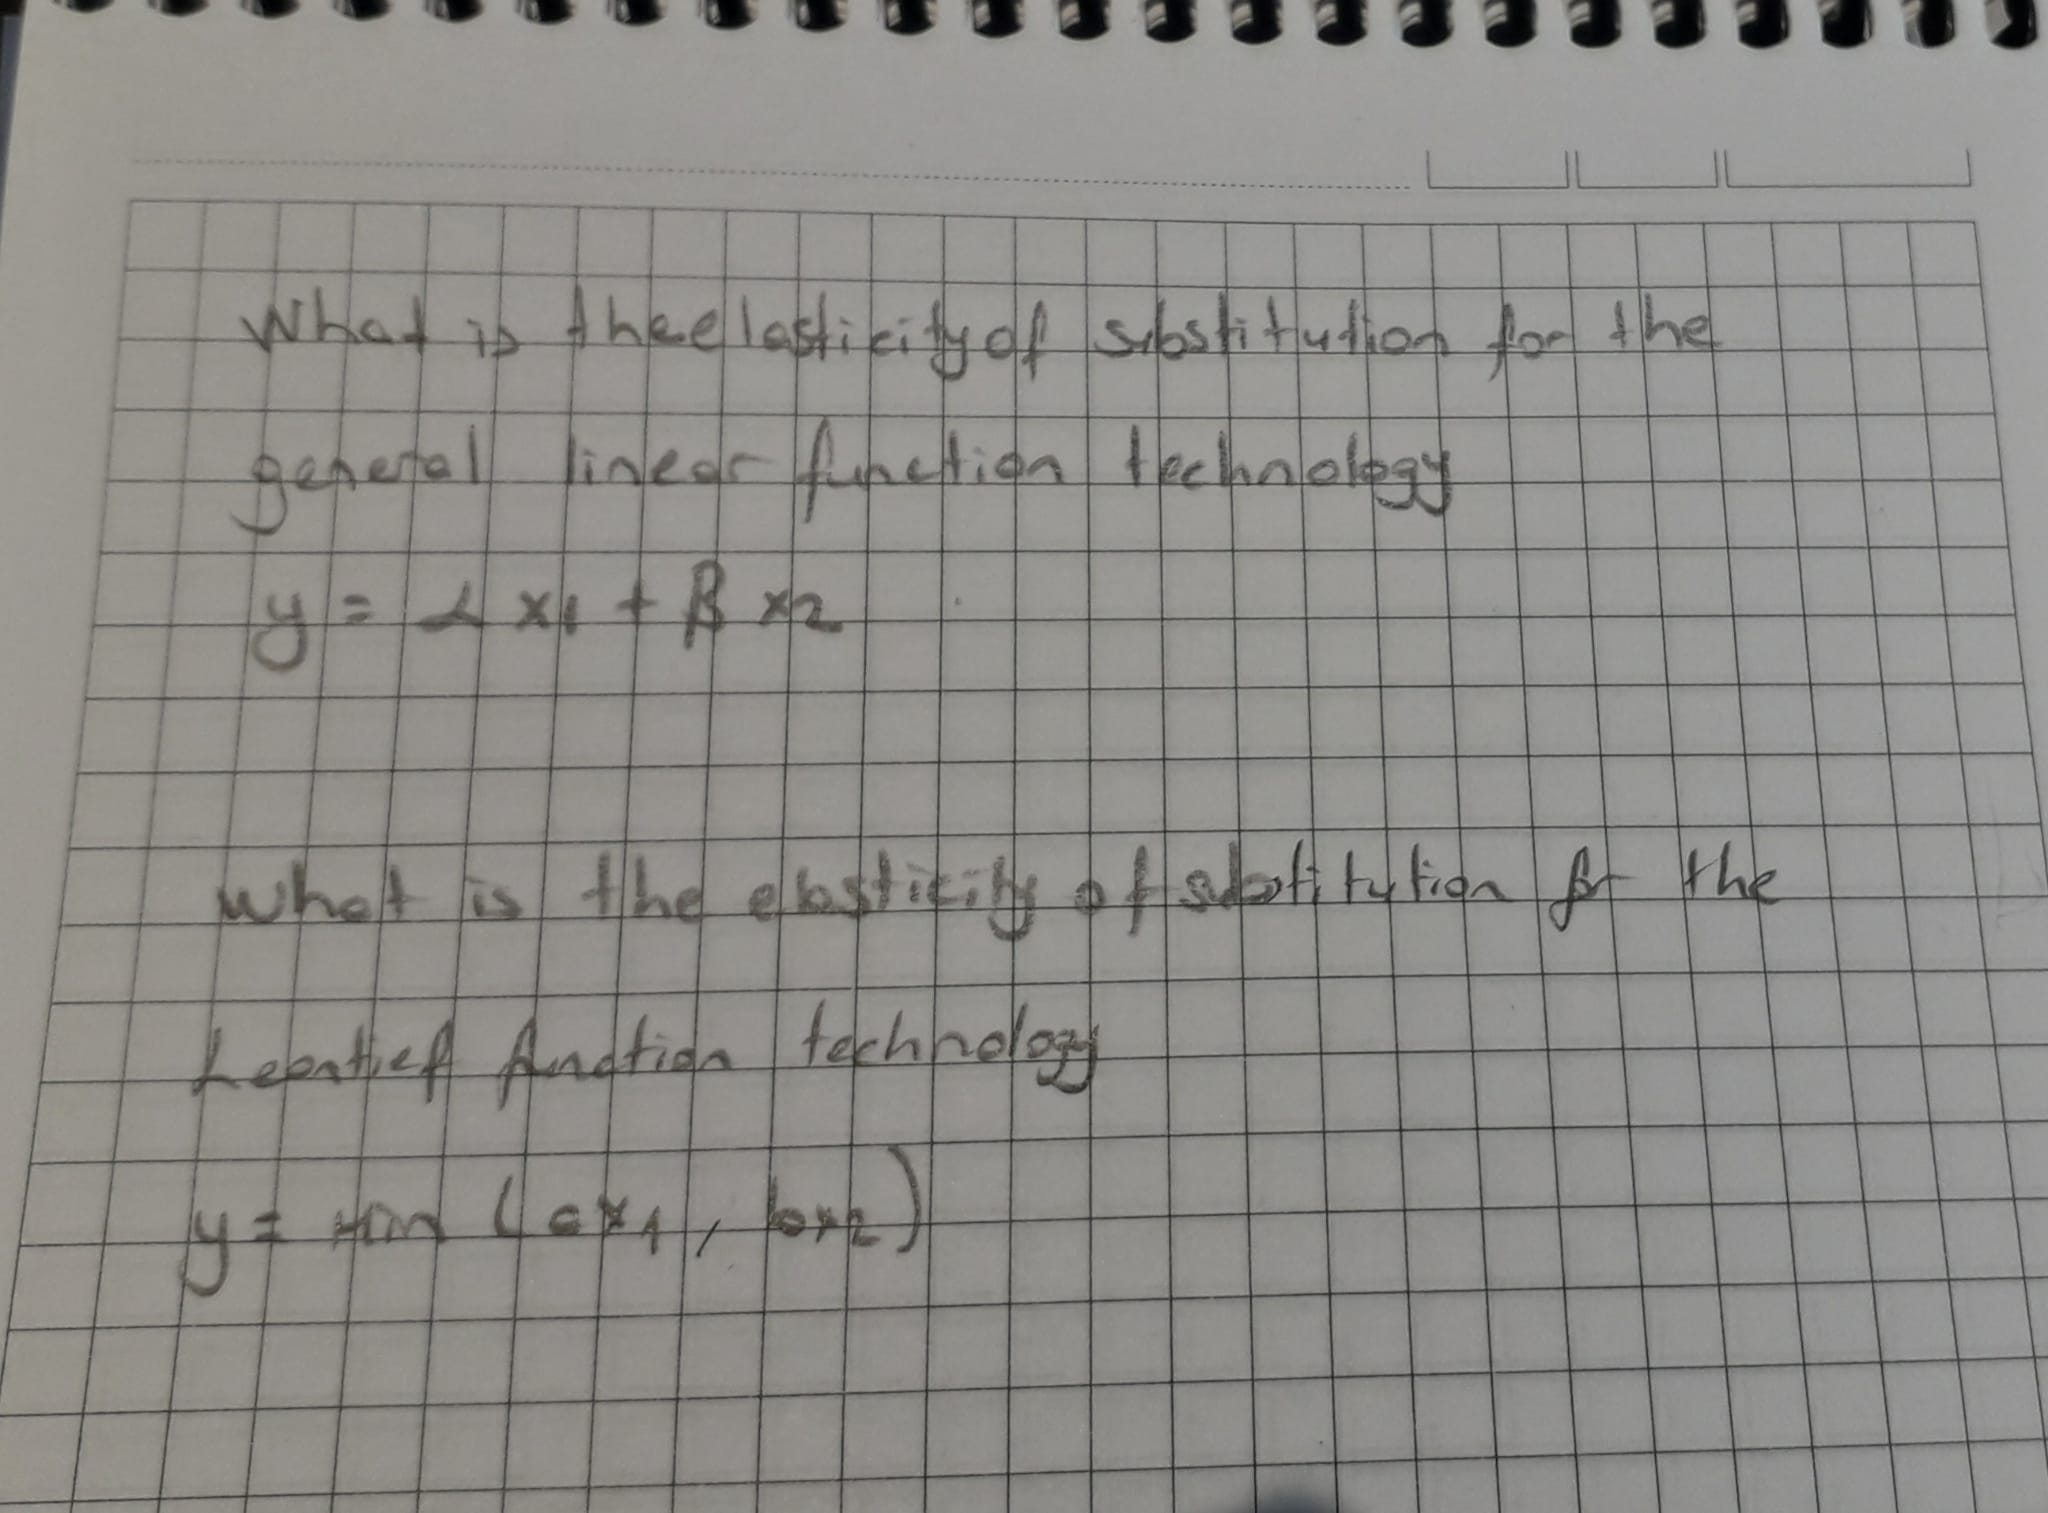 What is the elasticity of substitution for the
general linear function technology
y = α x1 + β x2
what is the elasticity of substitution for the
Leontief function technology
y = min (ax1, bx2)